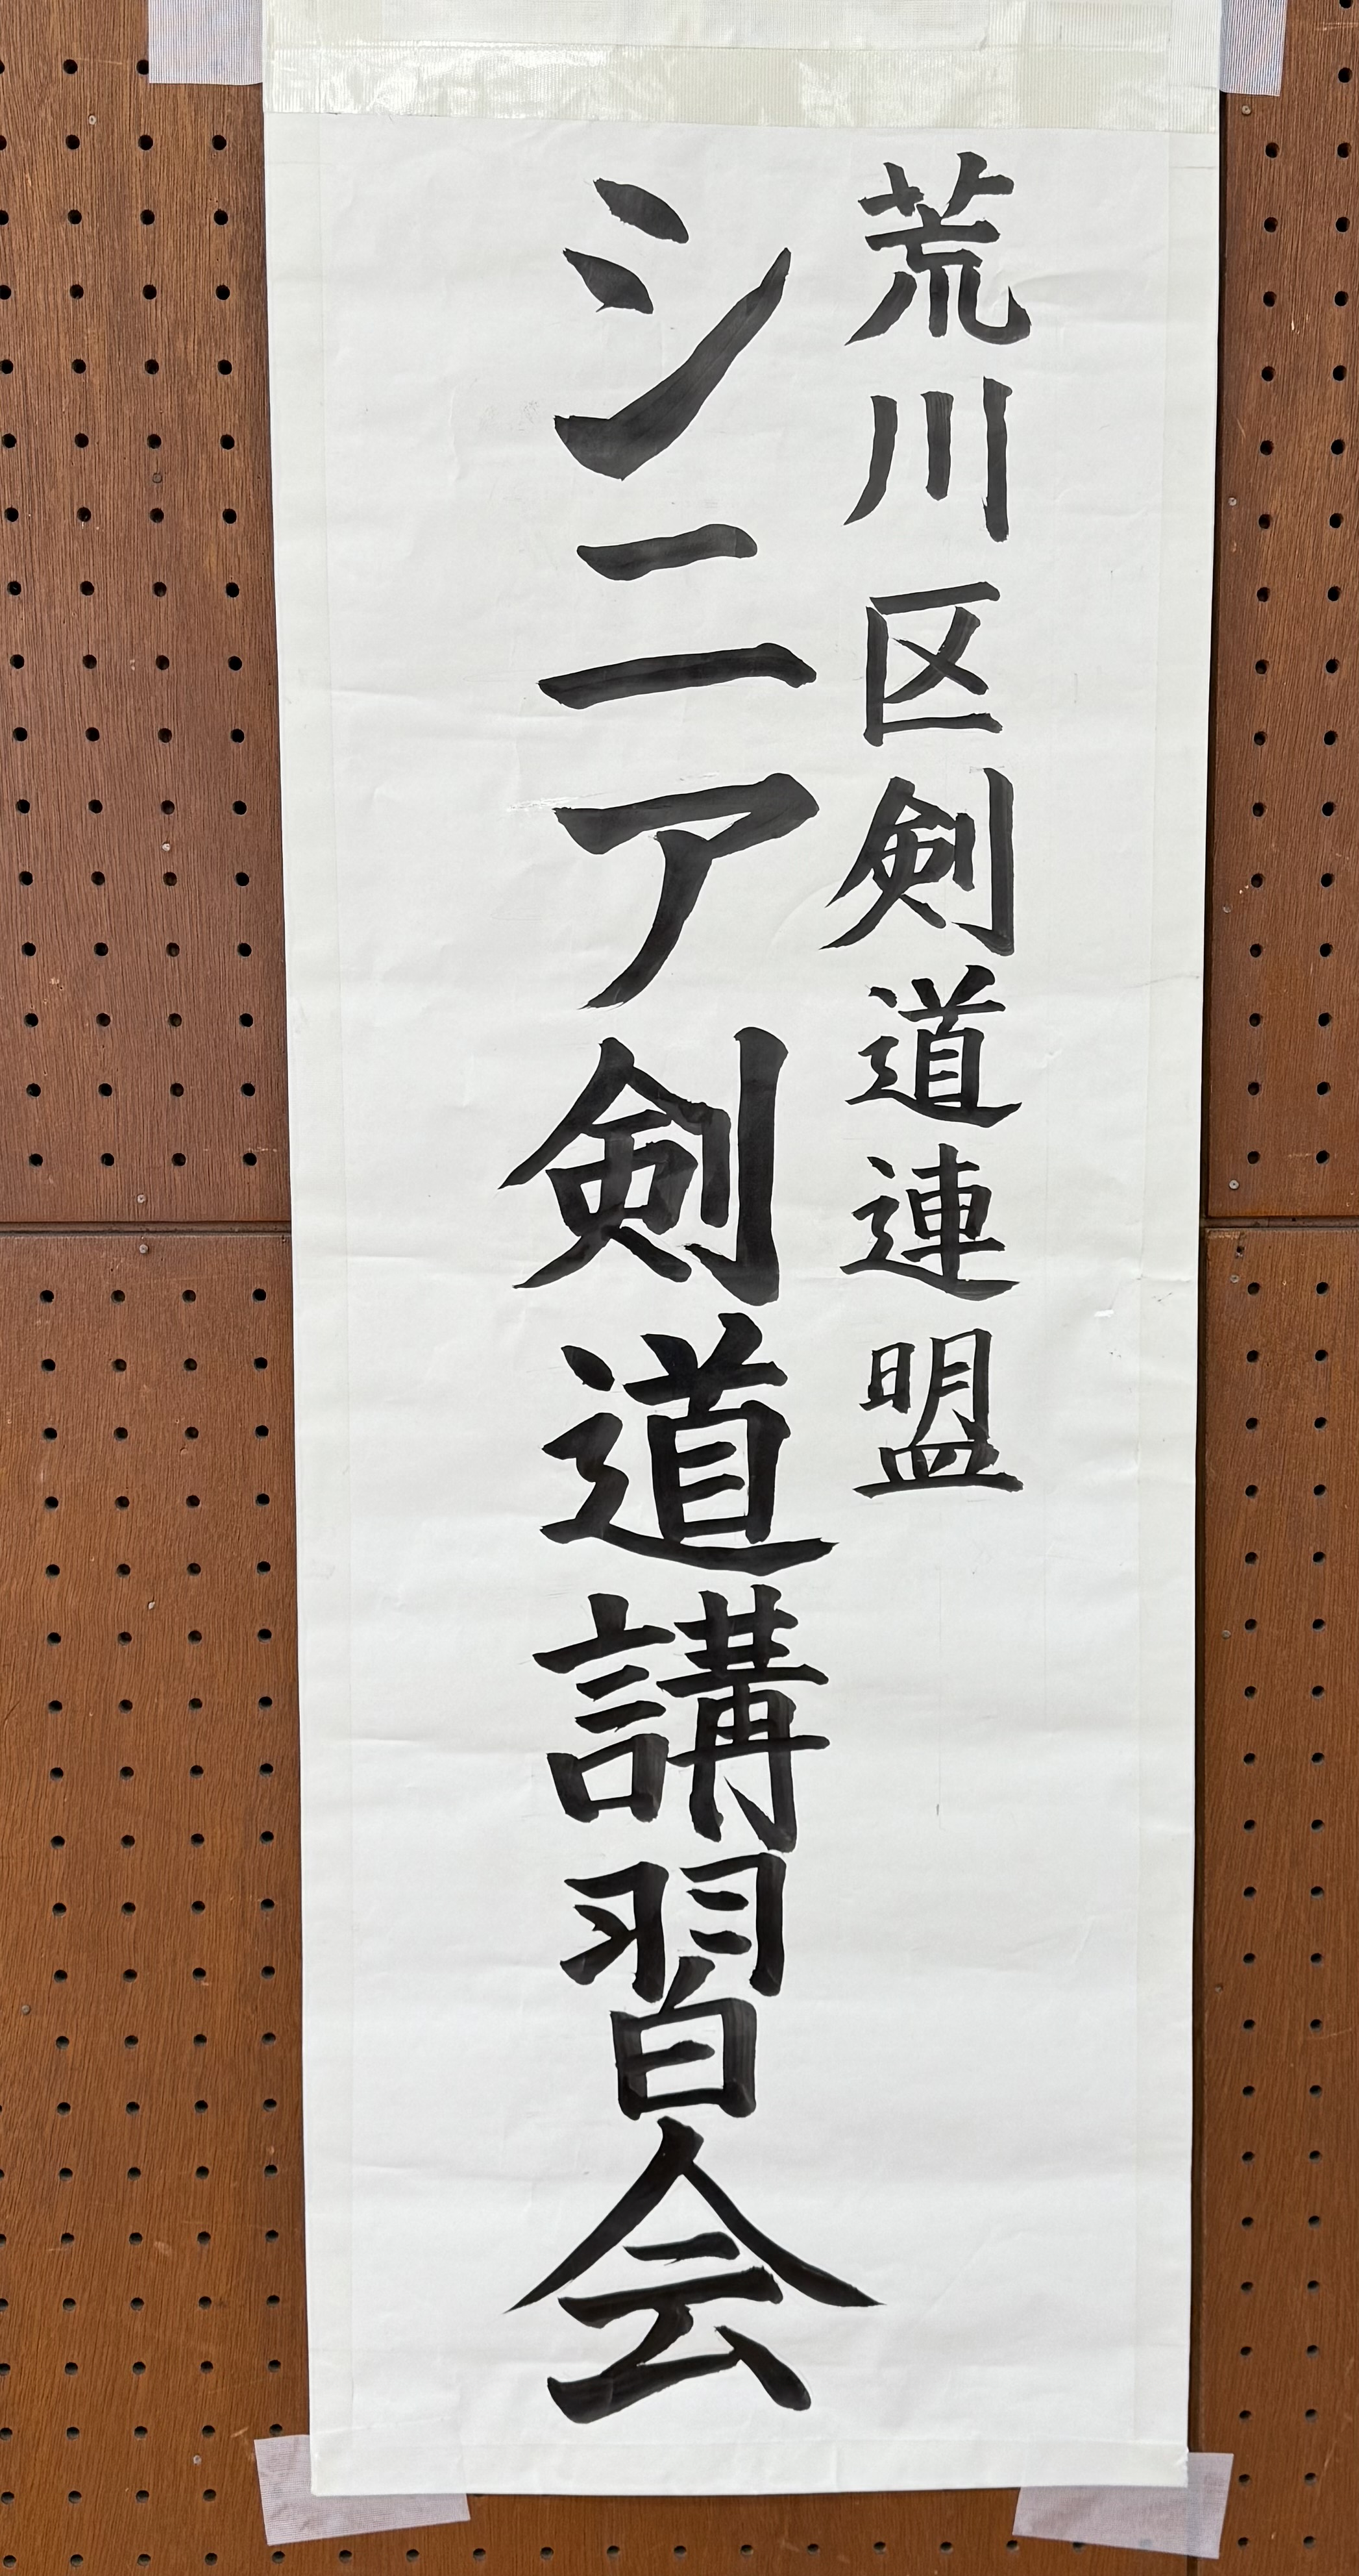 荒川区剣道連盟
シニア剣道講習会